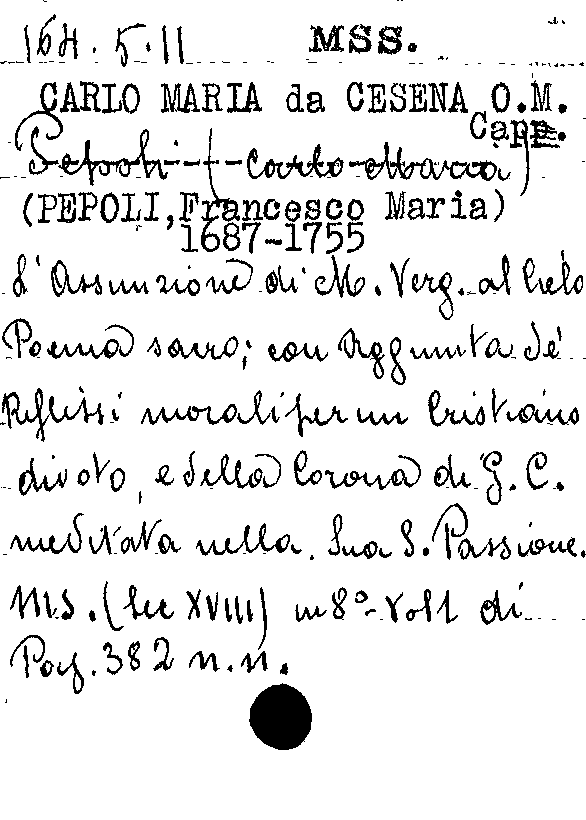 164.5.11 MSS.
CARLO MARIA da CESENA O.M.
Capp.
Pepoli (Carlo Maria)
(PEPOLI, Francesco Maria)
1687-1755
L'Assunzione di M. Verg. al Cielo
Poema sacro; con aggiunta de'
Riflessi morali per un Cristiano
divoto, e della Corona di G. C.
meditata nella Sua S. Passione.
MS. (Sec XVIII) in 8°- Vol 1 di
Pag. 382 n.n.